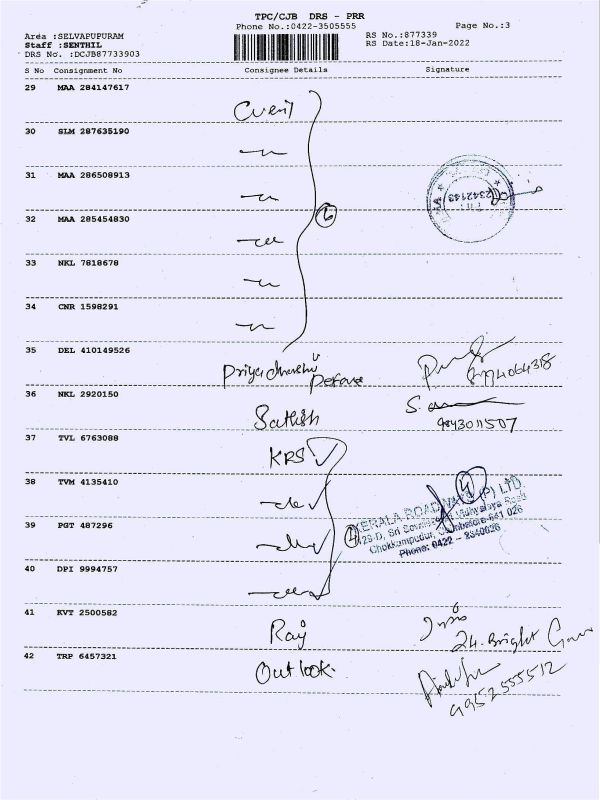 TPC/CJB DRS - PRR
Phone No.:0422-3505555
Page No.:3
Area :SELVAPUPURAM
RS No.:877339
Staff :SENTHIL
RS Date:18-Jan-2022
DRS No. :DCJB87733903
S No Consignment No Consignee Details Signature
29 MAA 284147617
30 SLM 287635190
31 MAA 286508913
32 MAA 285454830
6
33 NKL 7818678
34 CNR 1598291
35 DEL 410149526
Priyadharshi
36 NKL 2920150
Sathish
9843011507
37 TVL 6763088
KRS
38 TVM 4135410
39 PGT 487296
4
KERALA ROADWAYS (P) LTD
Chokkampudur, Coimbatore-641 026
Phone: 0422 - 2340026
40 DPI 9994757
41 KVT 2500582
Raj
24. Bright
42 TRP 6457321
Outlook.
9952555512